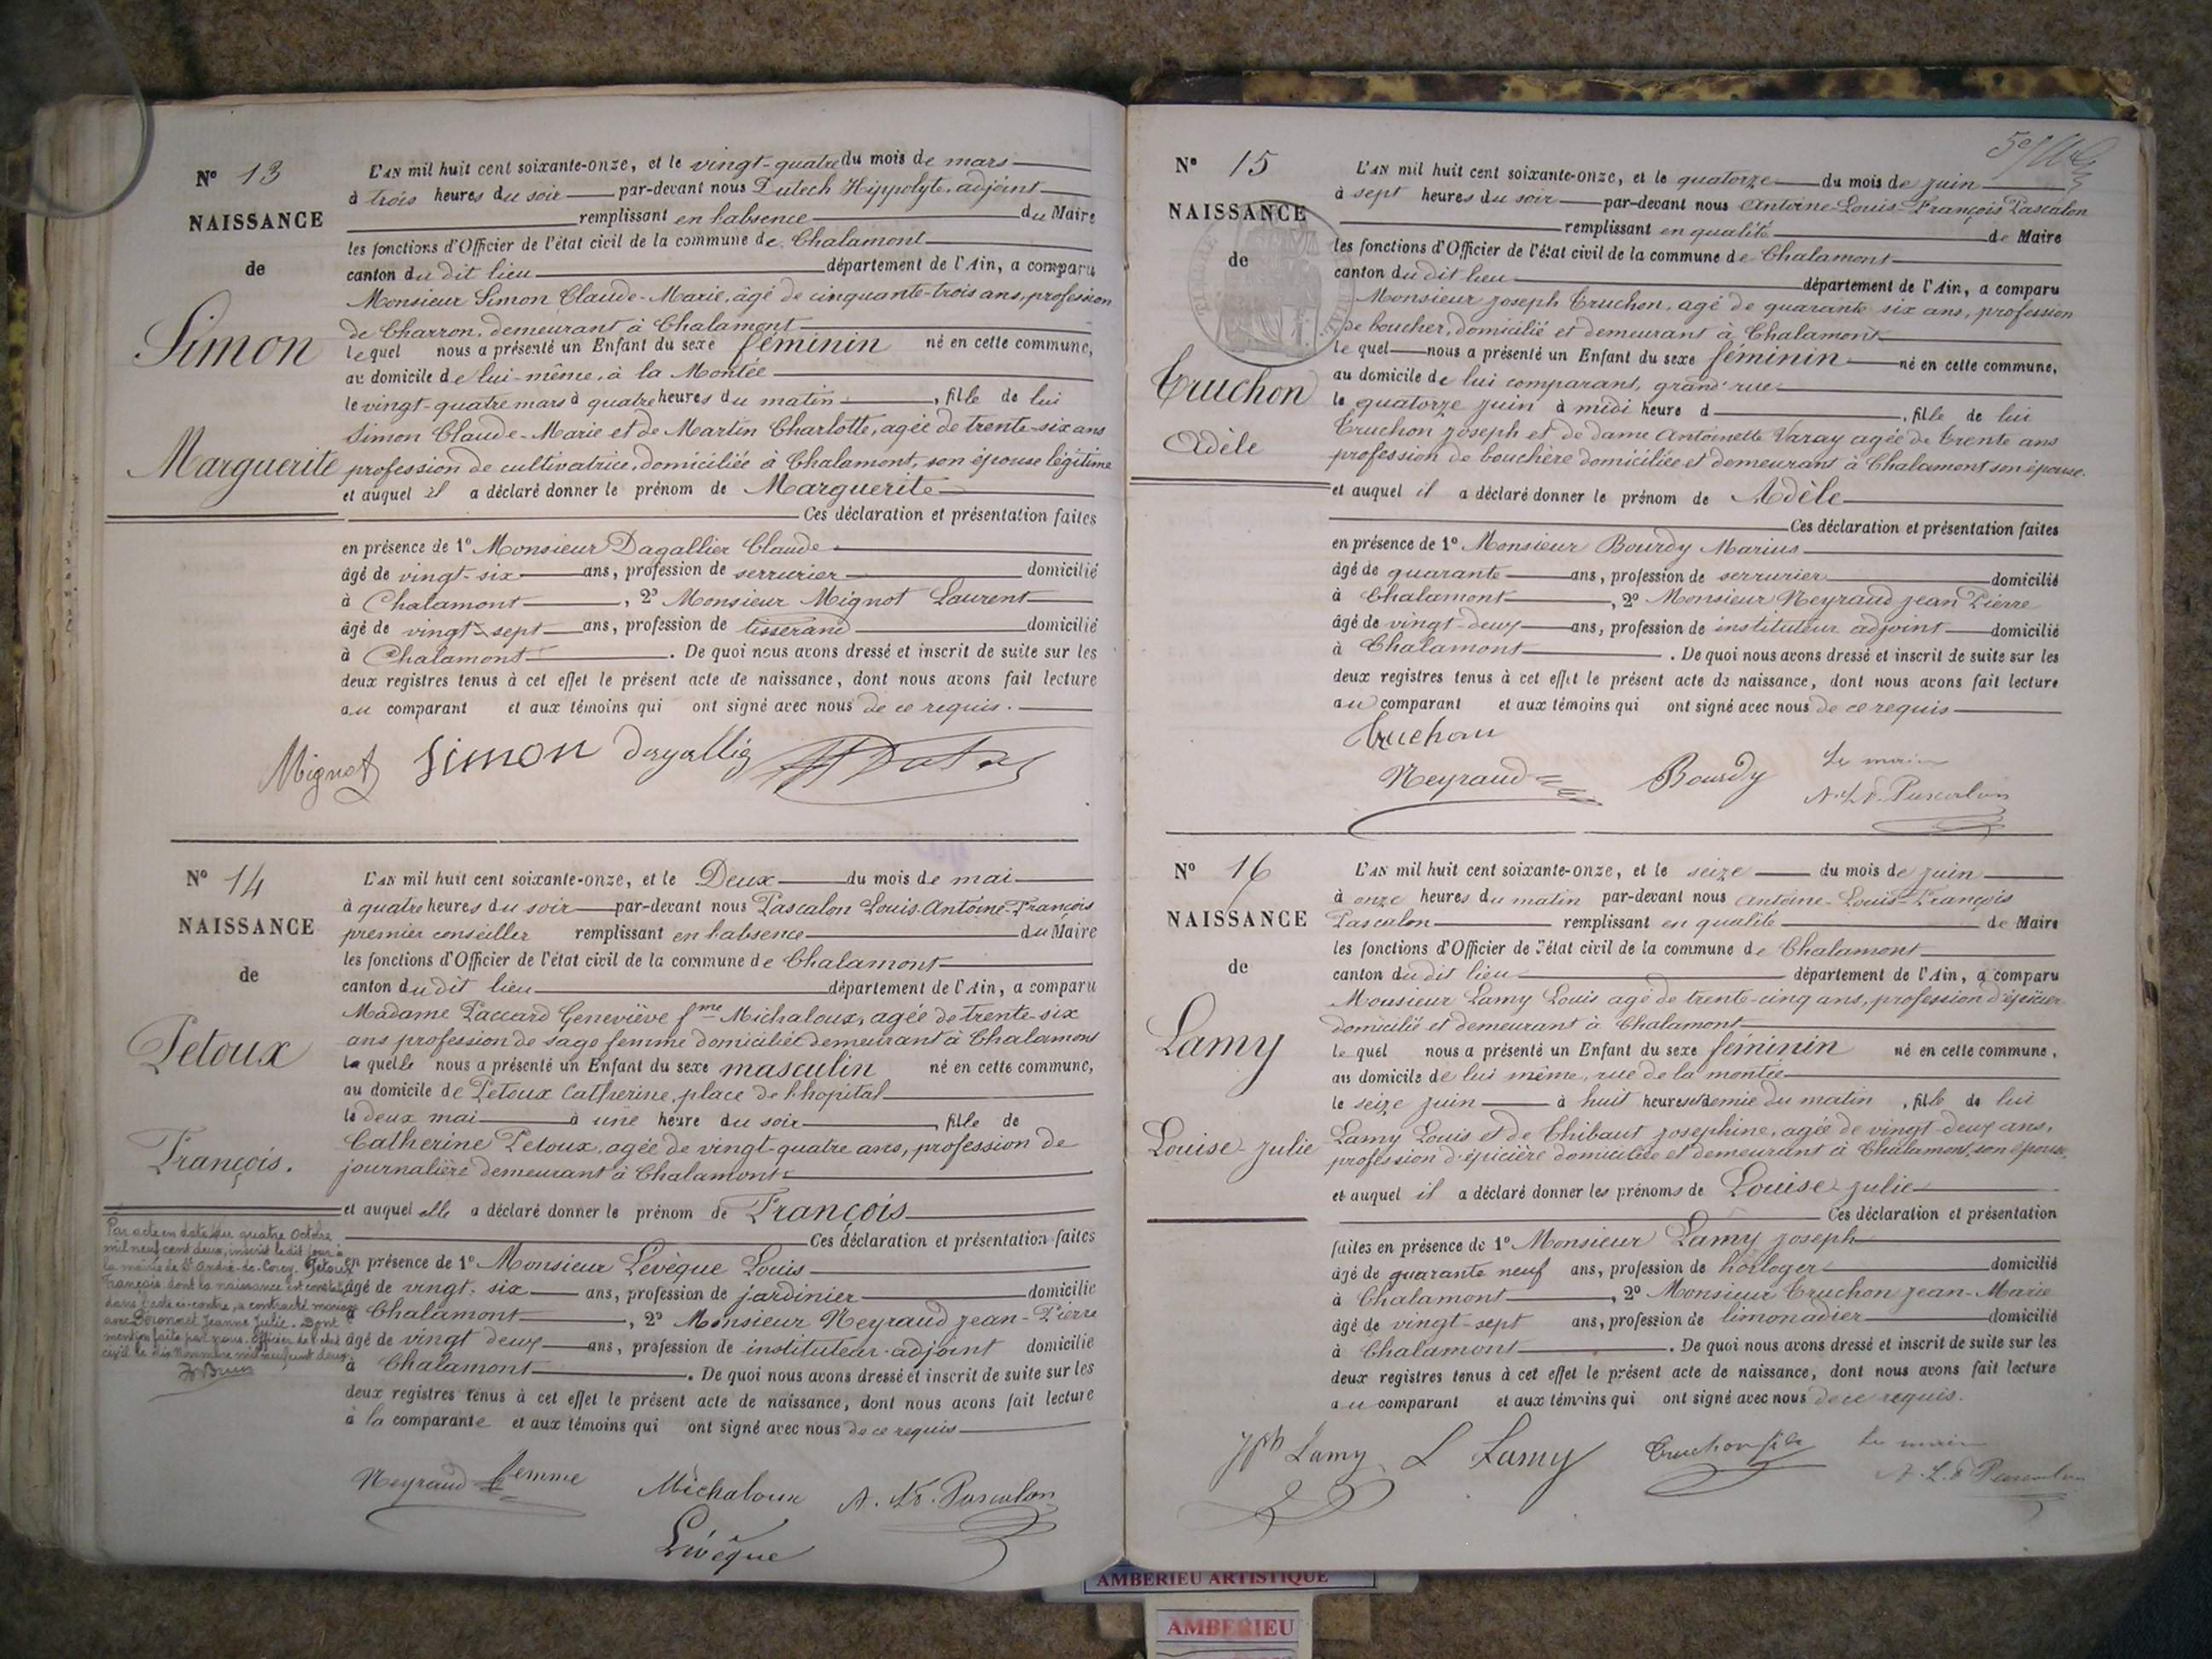 Nº 13
NAISSANCE
de
Simon
Marguerite
L'AN mil huit cent soixante-onze, et le vingt-quatre du mois de mars
à trois heures du soir par-devant nous Dutech Hippolyte, adjoint
remplissant en l'absence du Maire
les fonctions d'Officier de l'état civil de la commune de Chalamont
canton du dit lieu département de l'Ain, a comparu
Monsieur Simon Claude-Marie, âgé de cinquante-trois ans, profession
de Charron, demeurant à Chalamont
lequel nous a présenté un Enfant du sexe féminin né en cette commune,
au domicile de lui-même, à la Montée
le vingt-quatre mars à quatre heures du matin, fille de lui
Simon Claude-Marie et de Martin Charlotte, agée de trente-six ans
profession de cultivatrice, domiciliée à Chalamont, son épouse légitime
et auquel il a déclaré donner le prénom de Marguerite
Ces déclaration et présentation faites
en présence de 1º Monsieur Dagallier Claude
âgé de vingt-six ans, profession de serrurier domicilié
à Chalamont, 2º Monsieur Mignot Laurent
âgé de vingt-sept ans, profession de tisserand domicilié
à Chalamont. De quoi nous avons dressé et inscrit de suite sur les
deux registres tenus à cet effet le présent acte de naissance, dont nous avons fait lecture
au comparant et aux témoins qui ont signé avec nous de ce requis.
Mignot Simon
Nº 14
NAISSANCE
de
Petoux
François.
L'AN mil huit cent soixante-onze, et le Deux du mois de mai
à quatre heures du soir par-devant nous Pascalon Louis-Antoine-François
premier conseiller remplissant en l'absence du Maire
les fonctions d'Officier de l'état civil de la commune de Chalamont
canton du dit lieu département de l'Ain, a comparu
Madame Paccard Geneviève fme Michaloux, agée de trente-six
ans profession de sage femme domiciliée demeurant à Chalamont
laquelle nous a présenté un Enfant du sexe masculin né en cette commune,
au domicile de Petoux Catherine, place de l'hopital
le deux mai à une heure du soir, fille de
Catherine Petoux, agée de vingt-quatre ans, profession de
journalière demeurant à Chalamont
et auquel elle a déclaré donner le prénom de François
Ces déclaration et présentation faites
en présence de 1º Monsieur Lévèque Louis
âgé de vingt-six ans, profession de jardinier domicilié
à Chalamont, 2º Monsieur Neyraud Jean-Pierre
âgé de vingt deux ans, profession de instituteur-adjoint domicilié
à Chalamont. De quoi nous avons dressé et inscrit de suite sur les
deux registres tenus à cet effet le présent acte de naissance, dont nous avons fait lecture
à la comparante et aux témoins qui ont signé avec nous de ce requis
Par acte en date du quatre Octobre
mil neuf cent deux, inscrit le dit jour à
la mairie de St André-de-Corcy. Petoux
François dont la naissance est constatée
dans l'acte ci-contre, a contracté mariage
avec Jeanne Julie. Dont
mention faite par nous, Officier de l'état
civil le dix Novembre mil neuf cent deux.
Neyraud femme Michaloux A. L. F. Pascalon
Lévêque
Nº 15
NAISSANCE
de
Truchon
Adèle
L'AN mil huit cent soixante-onze, et le quatorze du mois de juin
à sept heures du soir par-devant nous Antoine-Louis-François Pascalon
remplissant en qualité de Maire
les fonctions d'Officier de l'état civil de la commune de Chalamont
canton du dit lieu département de l'Ain, a comparu
Monsieur Joseph Truchon, agé de quarante six ans, profession
de boucher, domicilié et demeurant à Chalamont
lequel nous a présenté un Enfant du sexe féminin né en cette commune,
au domicile de lui comparant, grand'rue
le quatorze juin à midi heure d, fille de lui
Truchon Joseph et de dame Antoinette Varay agée de trente ans
profession de bouchère domiciliée et demeurant à Chalamont son épouse.
et auquel il a déclaré donner le prénom de Adèle
Ces déclaration et présentation faites
en présence de 1º Monsieur Bourdy Marius
âgé de quarante ans, profession de serrurier domicilié
à Chalamont, 2º Monsieur Neyraud Jean Pierre
âgé de vingt-deux ans, profession de instituteur adjoint domicilié
à Chalamont. De quoi nous avons dressé et inscrit de suite sur les
deux registres tenus à cet effet le présent acte de naissance, dont nous avons fait lecture
au comparant et aux témoins qui ont signé avec nous de ce requis
Truchon
Neyraud Bourdy Le maire
A. L. F. Pascalon
Nº 16
NAISSANCE
de
Lamy
Louise-Julie
L'AN mil huit cent soixante-onze, et le seize du mois de juin
à onze heures du matin par-devant nous Antoine-Louis-François
Pascalon remplissant en qualité de Maire
les fonctions d'Officier de l'état civil de la commune de Chalamont
canton du dit lieu département de l'Ain, a comparu
Monsieur Lamy Louis agé de trente-cinq ans, profession d'épicier
domicilié et demeurant à Chalamont
lequel nous a présenté un Enfant du sexe féminin né en cette commune,
au domicile de lui même, rue de la montée
le seize juin à huit heures et demie du matin, fille de lui
Lamy Louis et de Thibaut Josephine, agée de vingt-deux ans,
profession d'épicière domiciliée et demeurant à Chalamont, son épouse.
et auquel il a déclaré donner les prénoms de Louise-Julie
Ces déclaration et présentation
faites en présence de 1º Monsieur Lamy Joseph
âgé de quarante neuf ans, profession de horloger domicilié
à Chalamont, 2º Monsieur Truchon Jean-Marie
âgé de vingt-sept ans, profession de limonadier domicilié
à Chalamont. De quoi nous avons dressé et inscrit de suite sur les
deux registres tenus à cet effet le présent acte de naissance, dont nous avons fait lecture
au comparant et aux témoins qui ont signé avec nous de ce requis.
Jph Lamy L Lamy Truchon fils Le maire
A. L. F. Pascalon
AMBERIEU ARTISTIQUE
AMBERIEU